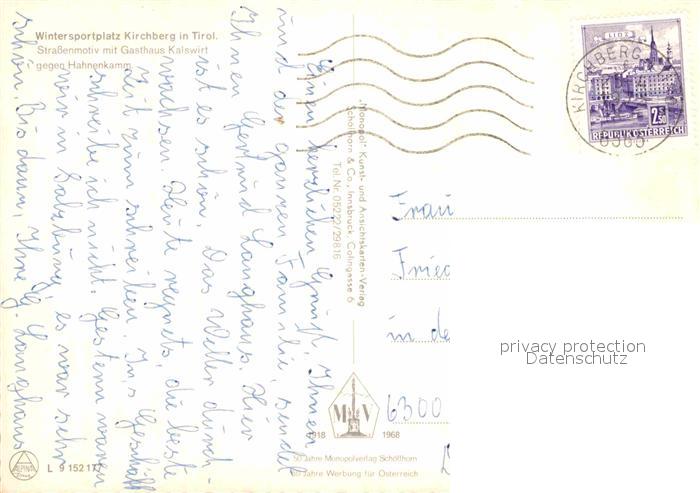 Wintersportplatz Kirchberg in Tirol.
Straßenmotiv mit Gasthaus Kalswirt
gegen Hahnenkamm
Einen herzlichen Gruß, Ihnen
und der ganzen Familie, sendet
Ihnen Gertrud Langhaus. Hier
ist es schön. Das Wetter durch-
wachsen. Heute regnets, die beste
Zeit zum schreiben. In's Geschäft
schreibe ich nicht. Gestern waren
wir in Salzburg, es war sehr
schön. Bis dann, Ihre G. Langhaus
"Monopol" Kunst- und Ansichtskarten-Verlag
Schöllhorn & Co., Innsbruck, Colingasse 6
Tel. Nr. 05222/29816
LINZ
2.50
REPUBLIK ÖSTERREICH
KIRCHBERG
Frau
Fried
in de
6300
privacy protection
Datenschutz
M V
1918 1968
50 Jahre Monopolverlag Schöllhorn
50 Jahre Werbung für Österreich
ALPINA
L 9 152 177